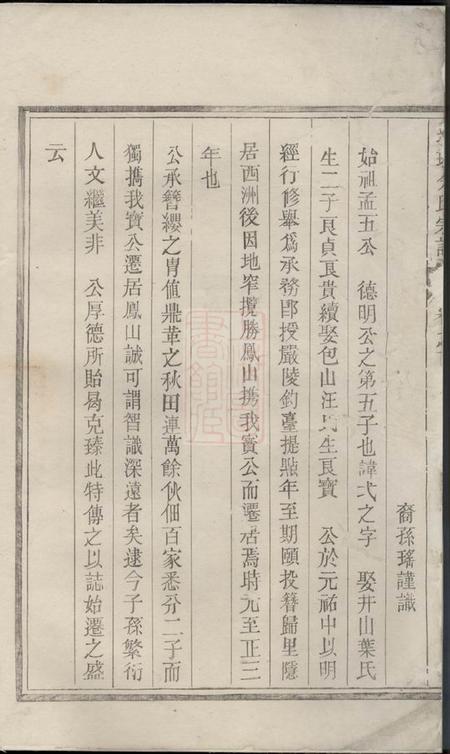 裔孫瑤謹識
始祖孟五公 德明公之第五子也諱弌之字 娶井山葉氏
生二子艮貞艮貴續娶包山汪氏生艮寶 公於元祐中以明
經行修舉爲承務郎授嚴陵釣臺提點年至期頤投簪歸里隱
居西洲後因地窄攬勝鳳山携我寶公而遷居焉時元至正三
年也
公承簪纓之胄值鼎革之秋田連萬餘伙佃百家悉分二子而
獨攜我寶公遷居鳳山誠可謂智識深遠者矣逮今子孫繁衍
人文繼美非 公厚德所貽曷克臻此特傳之以誌始遷之盛
云